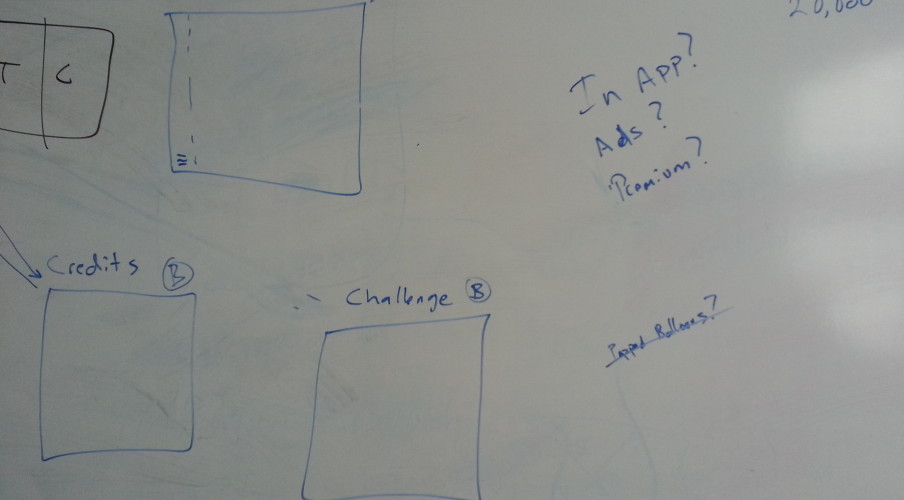 20,000
T C
In App?
Ads?
Premium?
Credits B
Challenge B
Popped Balloons?